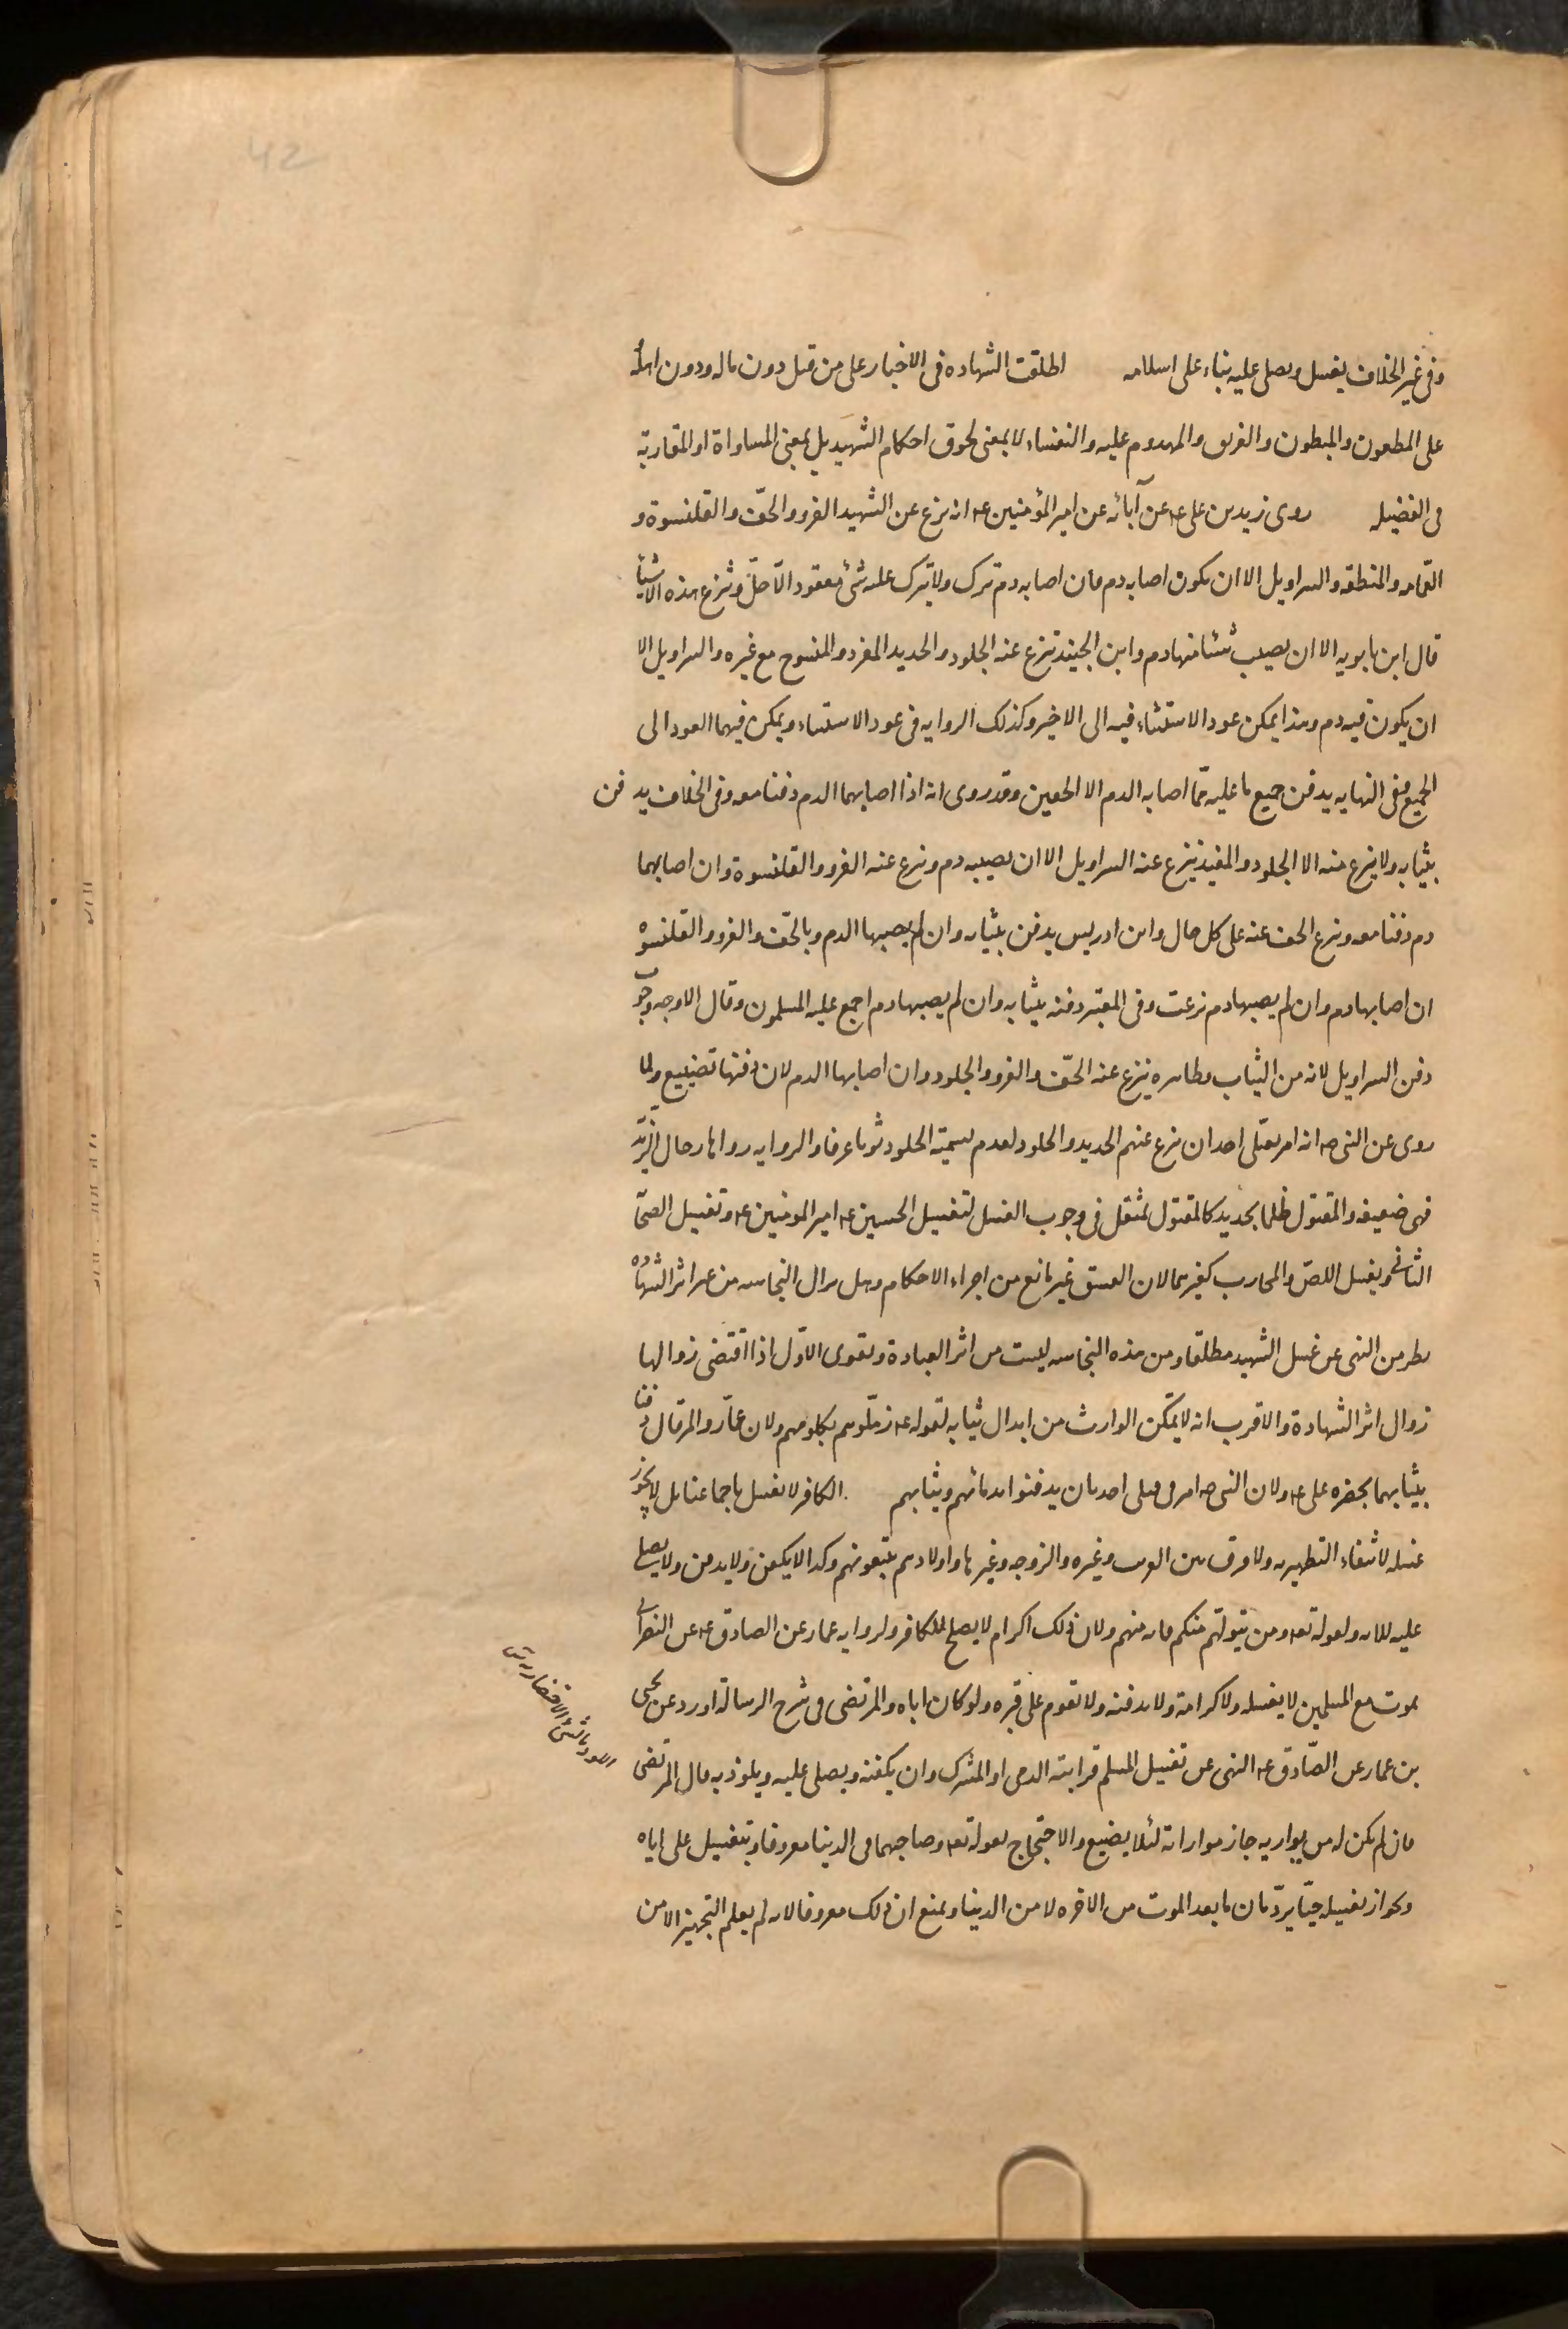 42
وفى غير الخلاف يغسل ويصلى عليه بناء على اسلامه اطلقت الشهاده فى الاخبار على من قتل دون ماله ودون اهله
على المطعون والمبطون والغريق والمهدوم عليه والنفساء لا بمعنى لحوق احكام الشهيد بل بمعنى المساواة او المقاربة
فى الفضيله روى زيد بن على ع عن آبائه عن امير المؤمنين ع انه ينزع عن الشهيد الفرو والخفّ والقلنسوة و
العمّامه والمنطقه والسراويل الا ان يكون اصابه دم فان اصابه دم ترك ولا يترك عليه شئ معقود الّا حلّ وتنزع هذه الاشياء
قال ابن بابويه الا ان يصيب شئا منها دم وابن الجنيد ينزع عنه الجلود والحديد المفرد والمنسوج مع غيره والسراويل الا
ان يكون فيه دم وهذا يمكن عود الاستثناء فيه الى الاخير وكذلك الروايه فى عود الاستثناء ويمكن فيهما العود الى
الجميع ففى النهايه يدفن جميع ما عليه ممّا اصابه الدم الا الخفين وقد روى انه اذا اصابهما الدم دفنا معه وفى الخلاف يدفن
بثيابه ولا ينزع منه الا الجلود والمفيد ينزع عنه السراويل الا ان يصيبه دم وينزع عنه الفرو والقلنسوة وان اصابهما
دم دفنا معه وينزع الخف عنه على كل حال وابن ادريس يدفن بثيابه وان لم يصبها الدم وبالخفّ والفرو والقلنسوه
ان اصابها دم وان لم يصبها دم نزعت وفى المعتبر دفنه بثيابه وان لم يصبها دم اجمع عليه المسلمون وقال الاوجه وجوب
دفن السراويل لانه من الثياب وظاهره ينزع عنه الخفّ والفرو والجلود وان اصابها الدم لان دفنها تضييع ولما
روى عن النبى ص انه امر بقتلى احد ان ينزع عنهم الحديد والجلود لعدم تسمية الجلود ثوبا عرفا والروايه رواها رجال الزيديّه
فهى ضعيفه والمقتول ظلما بحديد كالمقتول بمثقل فى وجوب الغسل لتغسيل الحسين ع امير المومنين ع وتغسيل الصحّا
الثانى ويغسل اللصّ والمحارب كغيرهما لان الفسق غير مانع من اجراء الاحكام وهل يزال النجاسه من غير اثر الشهاده
نظر من النهى عن غسل الشهيد مطلقا ومن هذه النجاسه ليست من اثر العبادة ويقوى الاوّل اذا اقتضى زوالها
زوال اثر الشهادة والاقرب انه لا يمكّن الوارث من ابدال ثيابه لقوله ع زمّلوهم بكلومهم ولان عمّار والمرقال دفنا
بثيابهما بحضره على ع ولان النبى ص امر فى قتلى احد بان يدفنوا بدمائهم وثيابهم الكافر لا يغسل باجماعنا بل لا يجوز
غسله لانتفاء التطهير به ولا فرق بين القريب وغيره والزوجه وغيرها واولادهم يتبعونهم وكذا لا يكفن ولا يدفن ولا يصلى
عليه للايه ولقوله تعه ومن يتولّهم منكم فانه منهم ولان ذلك اكرام لا يصلح للكافر ولروايه عمار عن الصادق ع عن النصرانى
يموت مع المسلمين لا يغسله ولا كرامة ولا يدفنه ولا تقوم على قبره ولو كان اباه والمرتضى فى شرح الرسالة اورد عن يحيى
بن عمار عن الصّادق ع النهى عن تغسيل المسلم قرابته الذمى او المشرك وان يكفنه ويصلى عليه ويلوذ به قال المرتضى
فان لم يكن له من يواريه جاز مواراته لئلا يضيع والاحتجاج بقوله تعه وصاحبهما فى الدنيا معروفا وبتغسيل على اباه
وبجواز تغسيله حيّا يردّ بان ما بعد الموت من الاخره لا من الدنيا ونمنع ان ذلك معروفا لانه لم يعلم التجهيز الا من